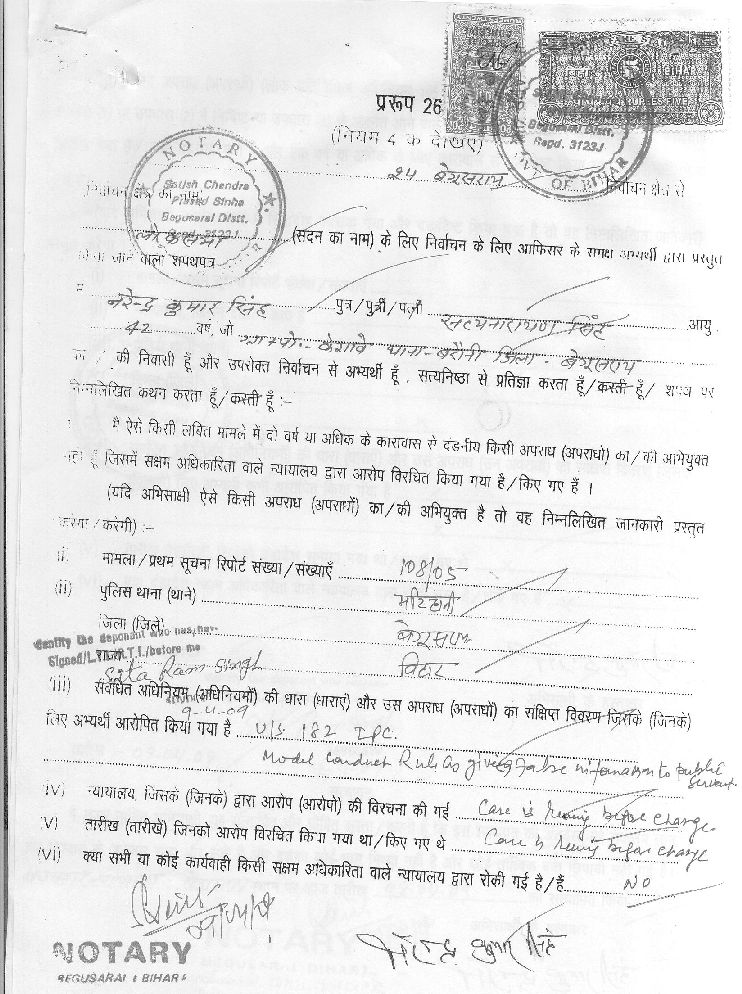 प्ररूप 26
(नियम 4 क देखिए)
NOTARY
Satish Chandra
Prasad Sinha
Begusarai Distt.
Regd. 3123J
Begusarai Distt.
Regd. 3123J
GOVT OF BIHAR
24 बेगूसराय निर्वाचन क्षेत्र से
निर्वाचन क्षेत्र का नाम
लोकसभा (सदन का नाम) के लिए निर्वाचन के लिए आफिसर के समक्ष अभ्यर्थी द्वारा प्रस्तुत
किया जाने वाला शपथपत्र
मैं नरेन्द्र कुमार सिंह पुत्र/पुत्री/पत्नी सत्यनारायण सिंह आयु
42 वर्ष, जो ग्रा०पो०- केशावे थाना-बरौनी जिला- बेगूसराय
का / की निवासी हूँ और उपरोक्त निर्वाचन से अभ्यर्थी हूँ , सत्यनिष्ठा से प्रतिज्ञा करता हूँ/करती हूँ/ शपथ पर
निम्नलिखित कथन करता हूँ/करती हूँ :-
मैं ऐसे किसी लंबित मामले में दो वर्ष या अधिक के कारावास से दंडनीय किसी अपराध (अपराधों) का/की अभियुक्त
नहीं हूँ जिसमें सक्षम अधिकारिता वाले न्यायालय द्वारा आरोप विरचित किया गया है/किए गए हैं ।
(यदि अभिसाक्षी ऐसे किसी अपराध (अपराधों) का/की अभियुक्त है तो वह निम्नलिखित जानकारी प्रस्तुत
करेगा/करेगी) :-
i. मामला/प्रथम सूचना रिपोर्ट संख्या/संख्याएँ 108/05
(ii) पुलिस थाना (थाने) मटिहानी
जिला (जिले) बेगूसराय
Identify the deponent who has/have
Signed/L.T.I./R.T.I./before me
राज्य बिहार
Sita Ram Singh
(iii) संबंधित अधिनियम (अधिनियमों) की धारा (धाराएं) और उस अपराध (अपराधों) का संक्षिप्त विवरण जिसके (जिनके)
9-4-09
लिए अभ्यर्थी आरोपित किया गया है U/S 182 IPC.
Model Conduct Rule as giving false information to public
servant
iv) न्यायालय जिसके (जिनके) द्वारा आरोप (आरोपों) की विरचना की गई Case is hearing before charge.
(v) तारीख (तारीखें) जिनको आरोप विरचित किया गया था/किए गए थे Case is hearing before charge
(vi) क्या सभी या कोई कार्यवाही किसी सक्षम अधिकारिता वाले न्यायालय द्वारा रोकी गई है/हैं NO
नरेन्द्र कुमार सिंह
NOTARY
BEGUSARAI (BIHAR)